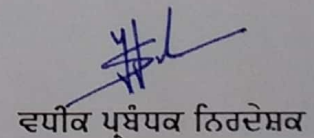 ਵਧੀਕ ਪ੍ਰਬੰਧਕ ਨਿਰਦੇਸ਼ਕ